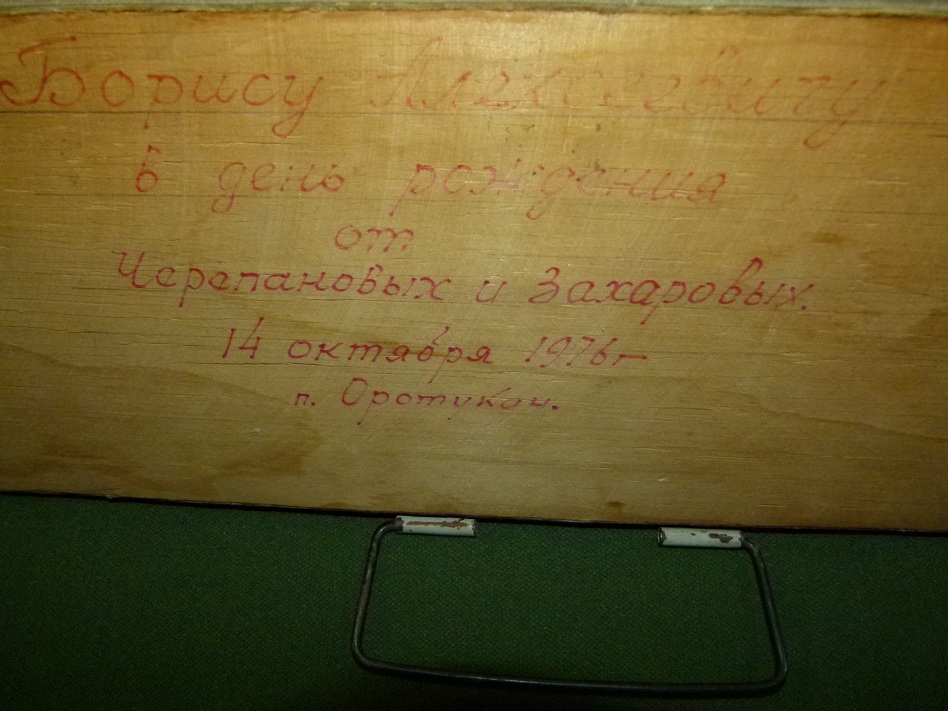 Борису Алексеевичу
в день рождения
от
Черепановых и Захаровых.
14 октября 1976г
п. Оротукан.